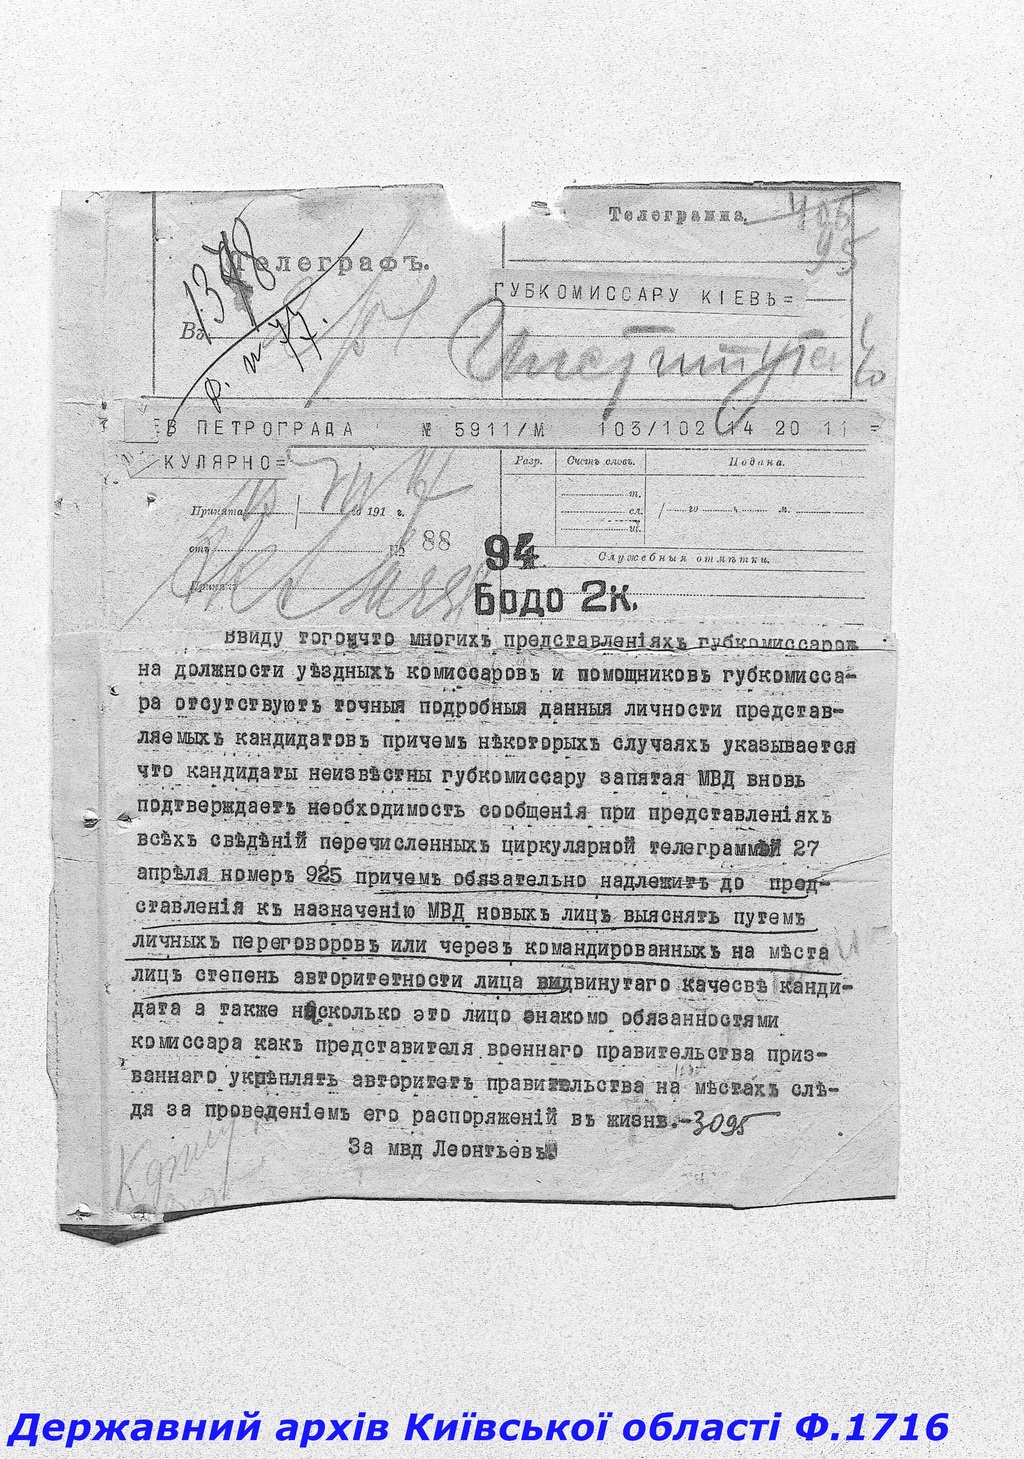 Телеграмма.
495
95
1378
Телеграфъ.
ГУБКОМИССАРУ КІЕВЪ=
Въ
ЕВ ПЕТРОГРАДА № 5911/М 103/102 14 20 11 =
КУЛЯРНО=
Разр. Счетъ словъ. Подана.
т.
Принята го 191 г. сл. го ч. м.
ш.
отъ № 88
94
Служебныя отмѣтки.
Принялъ
Бодо 2к.
Ввиду того что многихъ представленіяхъ губкомиссаровъ
на должности уѣздныхъ комиссаровъ и помощниковъ губкомисса-
ра отсутствуютъ точныя подробныя данныя личности представ-
ляемыхъ кандидатовъ причемъ нѣкоторыхъ случаяхъ указывается
что кандидаты неизвѣстны губкомиссару запятая МВД вновь
подтверждаетъ необходимость сообщенія при представленіяхъ
всѣхъ свѣдѣній перечисленныхъ циркулярной телеграммѣй 27
апрѣля номеръ 925 причемъ обязательно надлежитъ до пред-
ставленія къ назначенію МВД новыхъ лицъ выяснять путемъ
личныхъ переговоровъ или черезъ командированныхъ на мѣста
лицъ степень авторитетности лица видвинутаго качесвѣ канди-
дата а также насколько это лицо знакомо обязанностями
комиссара какъ представителя военнаго правительства приз-
ваннаго укрѣплять авторитетъ правительства на мѣстахъ слѣ-
дя за проведеніемъ его распоряженій въ жизнь.-3095
За мвд Леонтьевъ
Державний архів Київської області Ф.1716